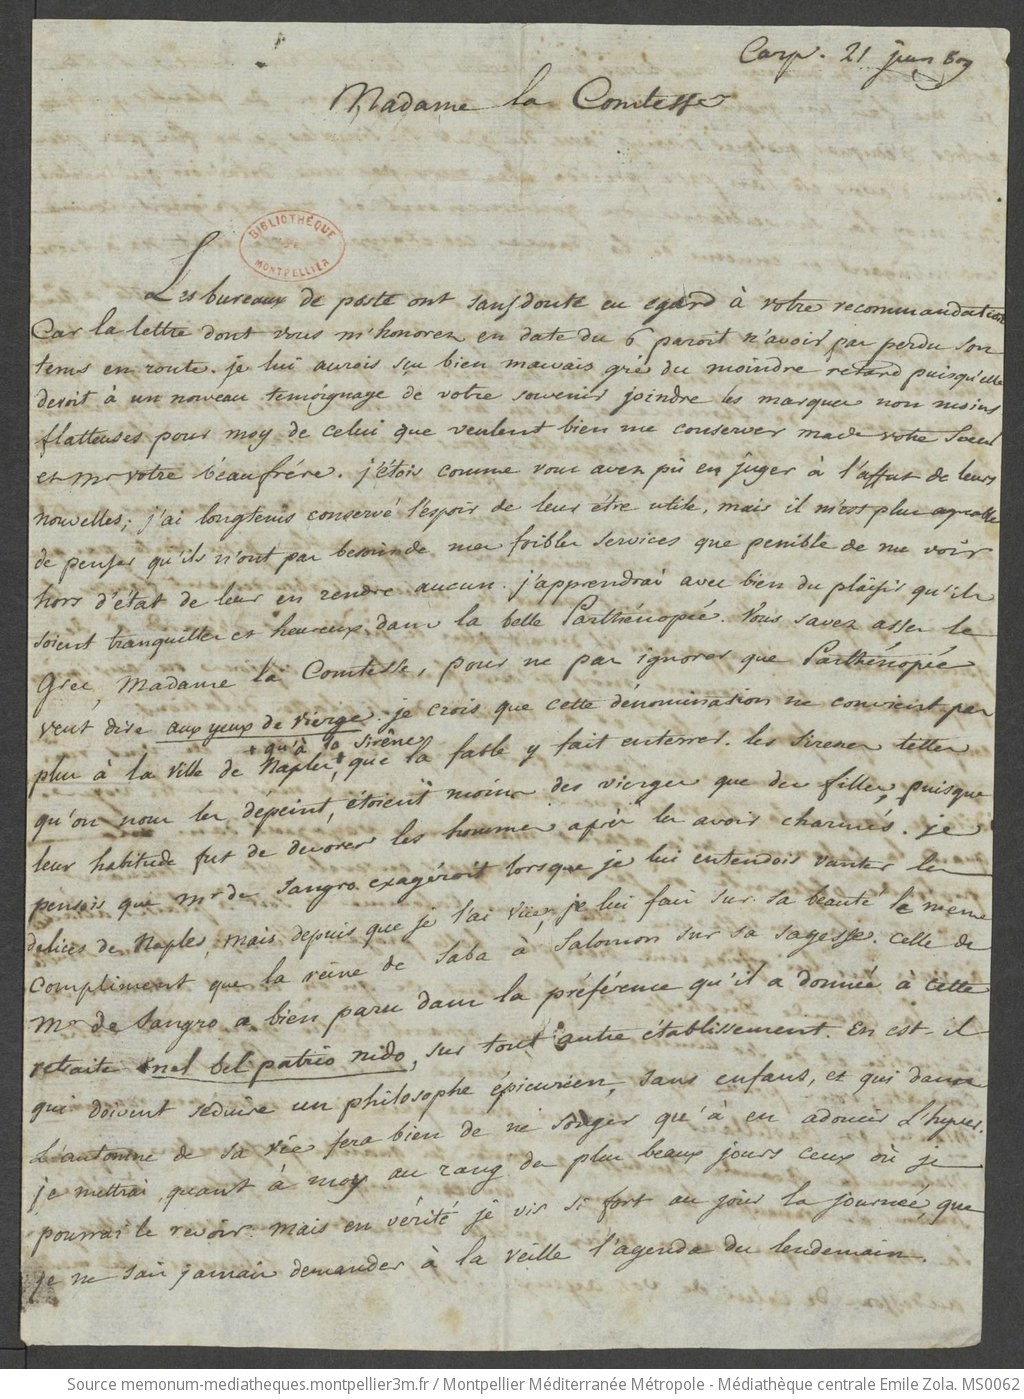 Carp. 21 juin 809
Madame la Comtesse
BIBLIOTHÉQUE
MONTPELLIER
Les bureaux de poste ont sans doute eu egard à votre recommandation
Car la lettre dont vous m'honorez en date du 6 paroit n'avoir pas perdu son
tems en route. je lui aurois su bien mauvais gré du moindre retard puisqu'elle
devoit à un nouveau témoignage de votre souvenir joindre les marques non moins
flatteuses pour moy de celui que veulent bien me conserver made votre Soeur
et Mr votre béaufrére. j'étois comme vous avez pû en juger à l'affut de leurs
nouvelles; j'ai longtems conservé l'éspoir de leur étre utile, mais il m'est plus agreable
de penser qu'ils n'ont pas besoin de mes foibles services que penible de me voir
hors d'état de leur en rendre aucun. j'apprendrai avec bien du plaisir qu'ils
soient tranquilles et heureux dans la belle Parthénopée. Vous savez assez le
Grec, Madame la Comtesse, pour ne pas ignorer que Parthénopée
veut dire aux yeux de vierge. je crois que cette dénomination ne convient pas
qu'à la sirène
plus à la ville de Naples, que la fable y fait enterrer. les sirenes telles
qu'on nous les dépeint, étoient moins des vierges que des filles, puisque
leur habitude fut de devorer les hommes aprés les avoir charmés. je
pensois que mr de Sangro exagéroit lorsque je lui entendois vanter les
delices de Naples, mais depuis que je l'ai vüe, je lui fais sur sa beauté le meme
Compliment que la reine de Saba à Salomon sur sa sagesse. Celle de
Mr de Sangro a bien paru dans la préférence qu'il a donnée à cette
retraite nel bel patrio nido, sur tout autre établissement. En est-il
qui doivent séduire un philosophe épicurien, sans enfans, et qui dans
L'automne de sa vie fera bien de ne songer qu'à en adoucir L'hyver.
je mettrai quant à moy au rang des plus beaux jours ceux où je
pourrai le revoir. mais en vérité je vis si fort au jour la journée, que
je ne sais jamais demander à la veille l'agenda du lendemain.
Source memonum-mediatheques.montpellier3m.fr / Montpellier Méditerranée Métropole - Médiathèque centrale Emile Zola. MS0062